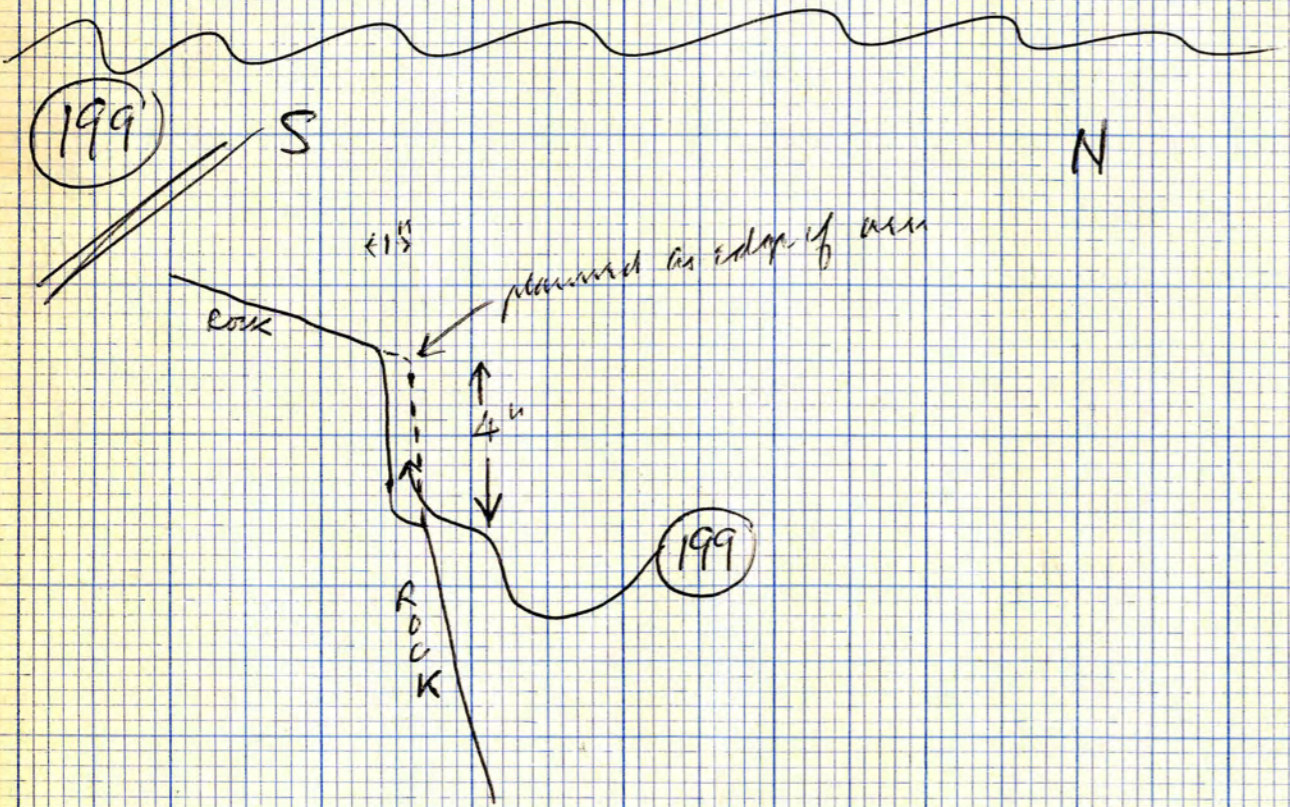 199
S
N
planned as edge of area
Rock
4"
199
ROCK